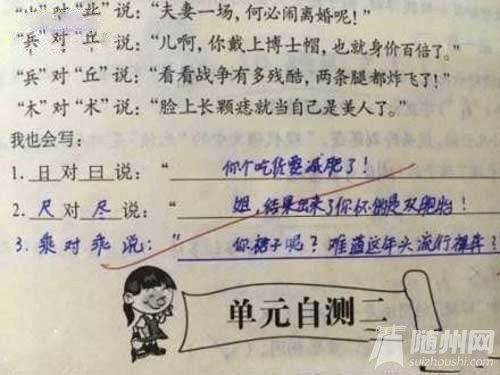 对 说：“夫妻一场，何必闹离婚呢！”
“兵”对“丘”说：“儿啊，你戴上博士帽，也就身价百倍了。”
“兵”对“丘”说：“看看战争有多残酷，两条腿都炸飞了！”
“木”对“术”说：“脸上长颗痣就当自己是美人了。”
我也会写：
1. 日 对 曰 说：“你个吃货要减肥了！
2. 尺 对 尽 说：“姐，结果出来了你怀的是双胞胎！
3. 乘 对 乖 说：“你裙子呢？难道这年头流行裸奔？
单元自测二
随州网
suizhoushi.com